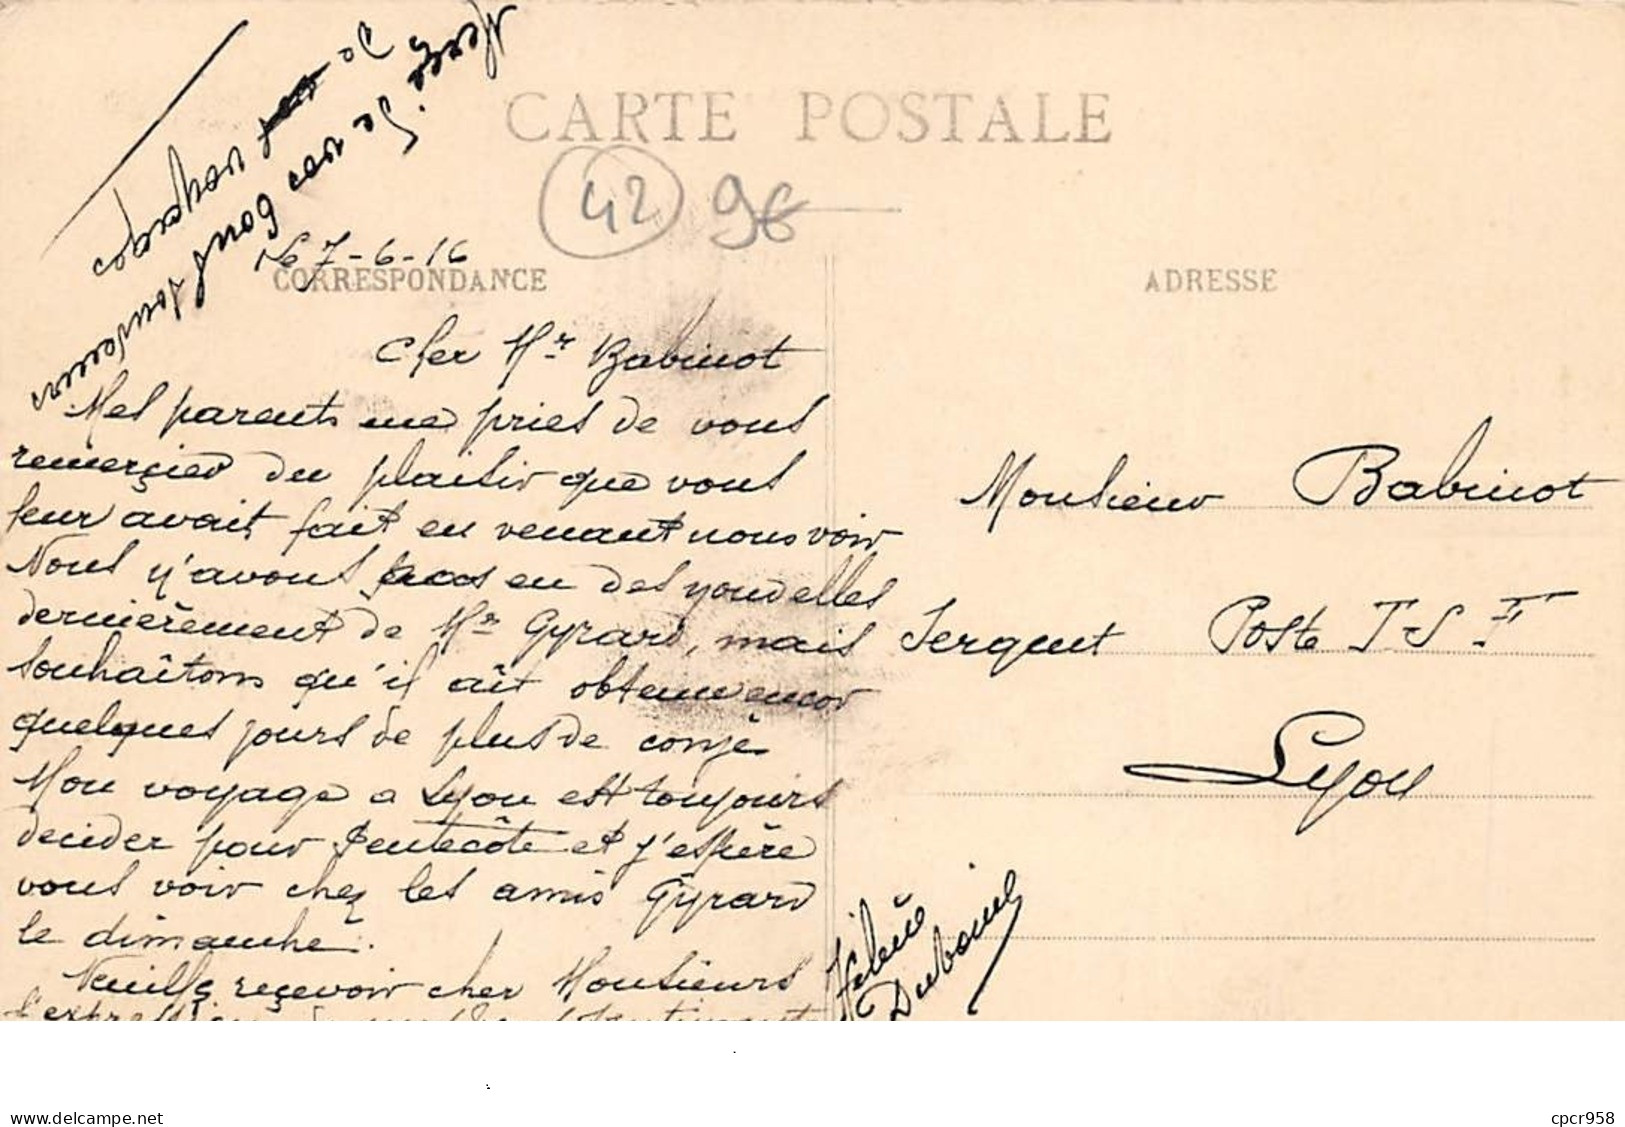 CARTE POSTALE
42 96
Le 7-6-16
CORRESPONDANCE
ADRESSE
Cher Mr Babinot
Mes parents me pries de vous
remerçier du plaisir que vous
leur avait fait en venant nous voir
Nous n'avons pas eu des nouvelles
dernièrement de Mr Gyrard, mais
souhaîtons qu'il aît obtenu encor
quelques jours de plus de congé
Mon voyage a Lyon est toujours
decider pour Pentecôte et j'espère
vous voir chez les amis Gyrard
le dimanche.
Veuillez reçevoir cher Monsieurs
l'expression de
Monsieur Babinot
Sergent Poste T S F
Lyon
Hélène
Dubanel
www.delcampe.net
cpcr958